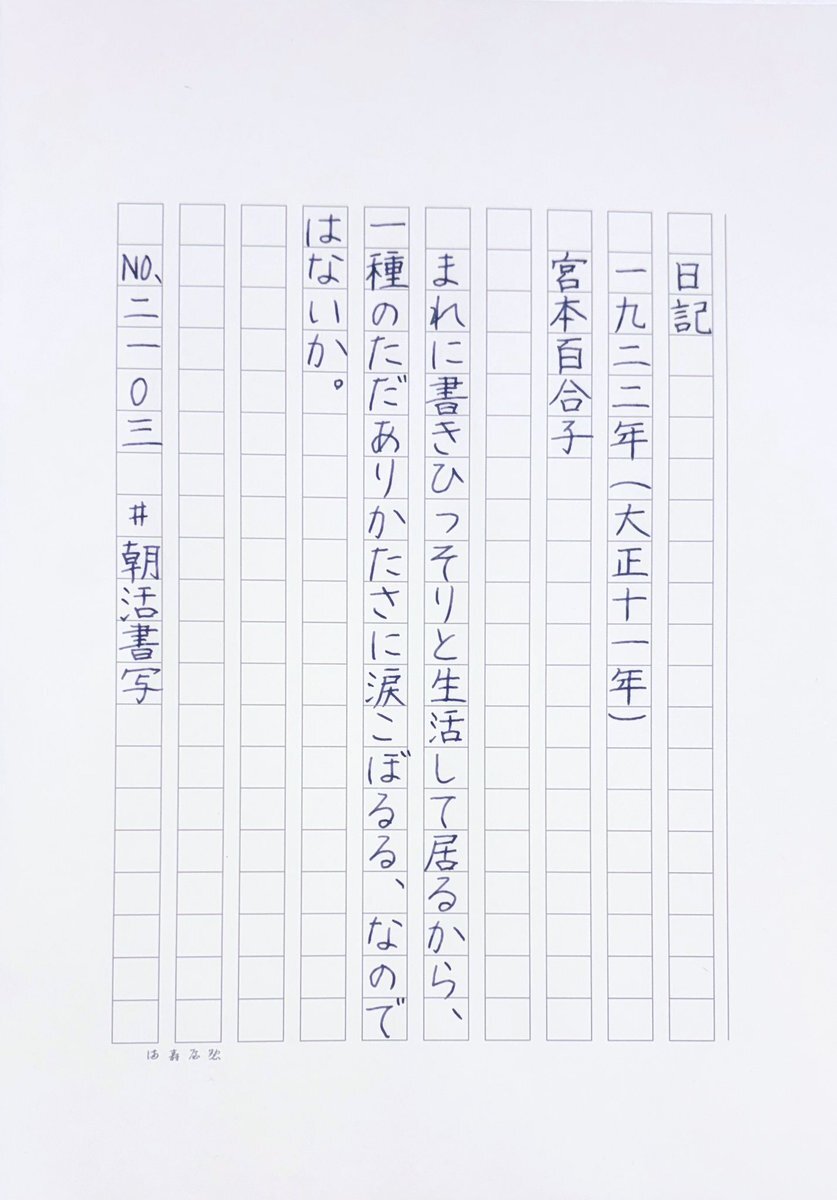 日記
一九二二年(大正十一年)
宮本百合子
まれに書きひっそりと生活して居るから、
一種のただありかたさに涙こぼるる、なので
はないか。
NO、二一〇三 #朝活書写